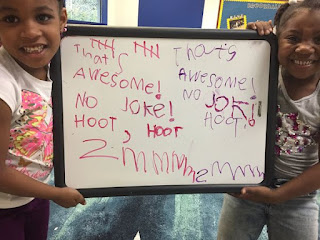 That's
AWESOME!
NO JOKE!
HOOT, HOOT
2mmmm
That's
AWESOME!
NO JOK!
HOOT!
2mmmm